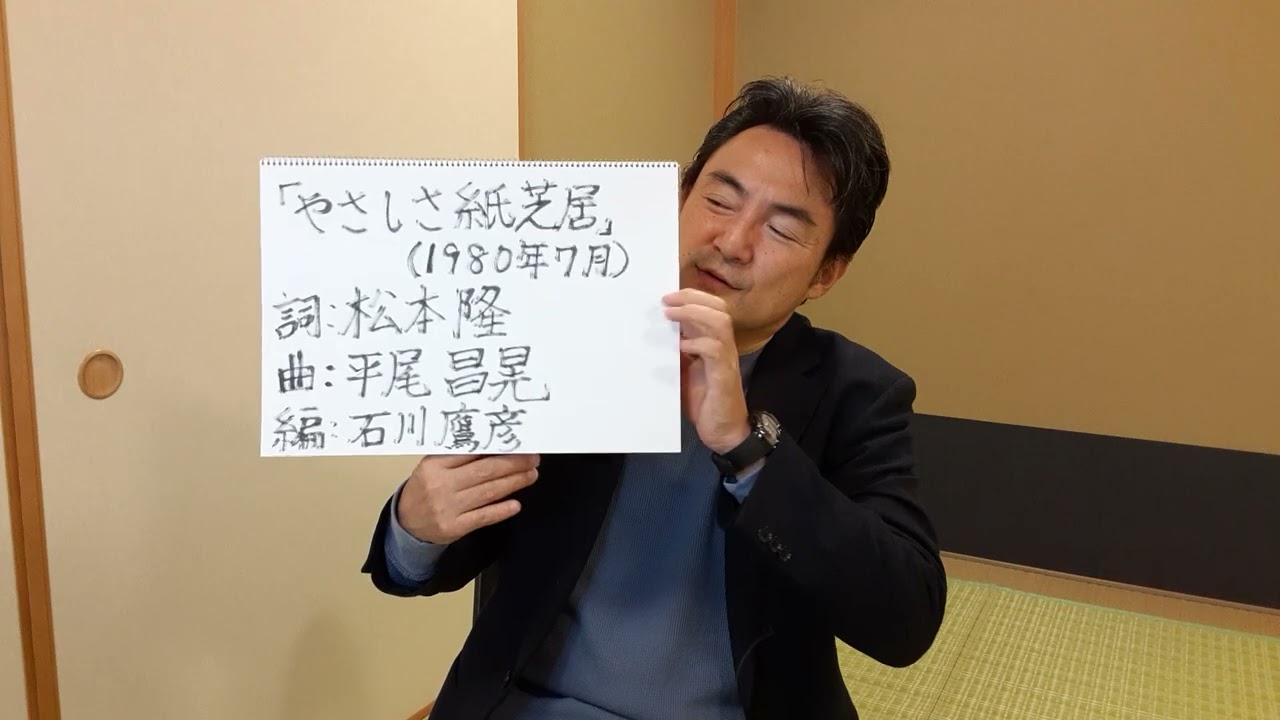 「やさしさ紙芝居」
(1980年7月)
詞:松本隆
曲:平尾昌晃
編:石川鷹彦